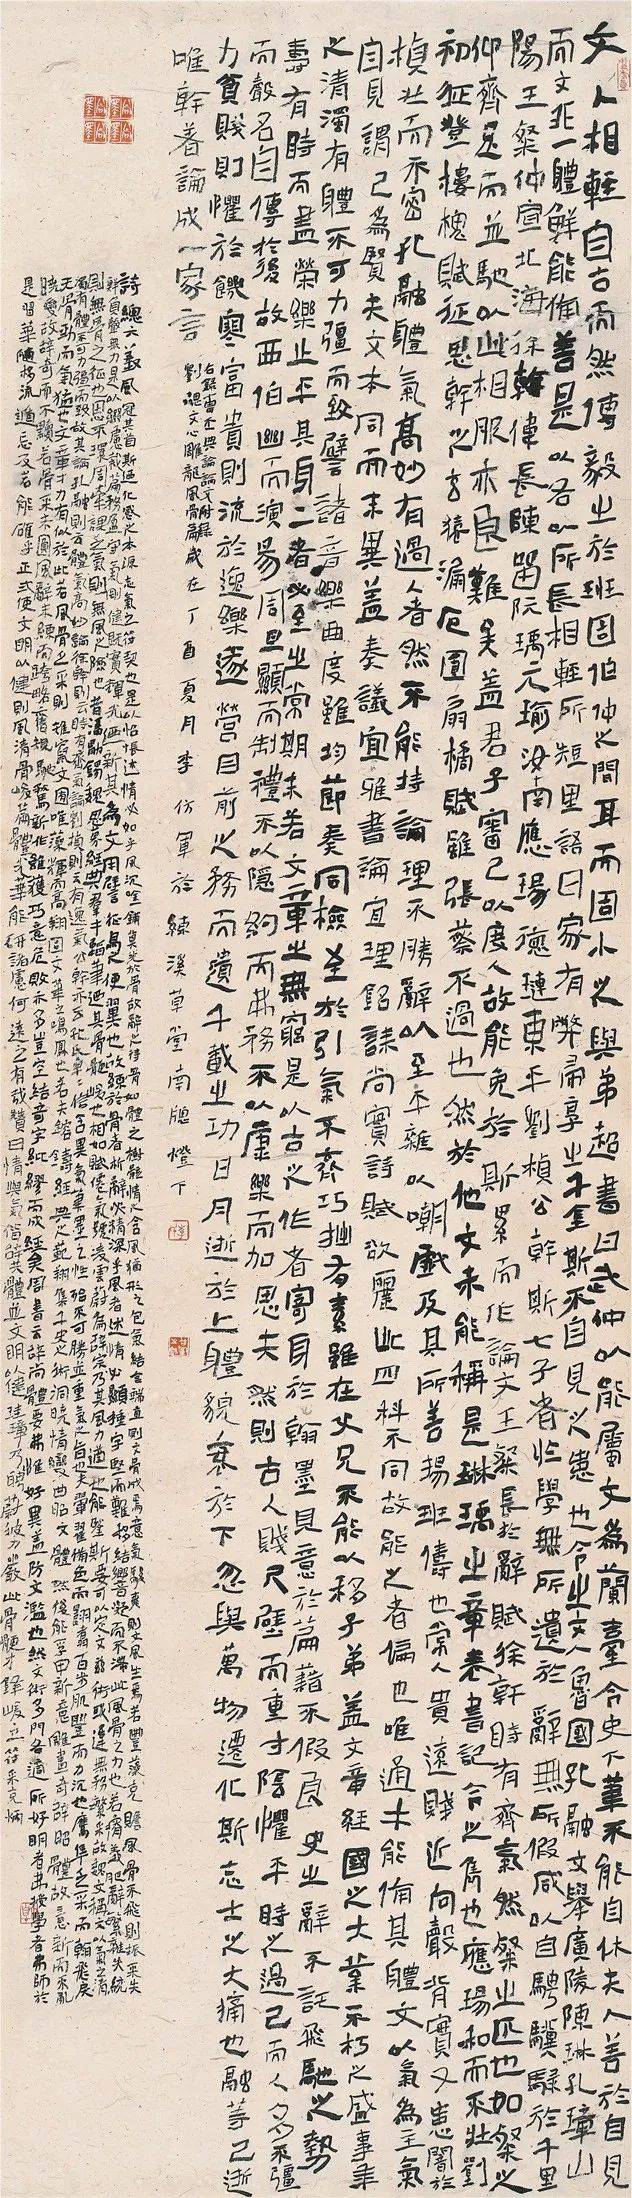 文人相輕自古而然傅毅之於班固伯仲之間耳而固小之與弟超書曰武仲以能屬文為蘭臺令史下筆不能自休夫人善於自見
而文非一體鮮能備善是以各以所長相輕所短里語曰家有弊帚享之千金斯不自見之患也今之文人魯國孔融文舉廣陵陳琳孔璋山
陽王粲仲宣北海徐幹偉長陳留阮瑀元瑜汝南應瑒德璉東平劉楨公幹斯七子者於學無所遺於辭無所假咸以自騁驥騄於千里
仰齊足而並馳以此相服亦良難矣蓋君子審己以度人故能免於斯累而作論文王粲長於辭賦徐幹時有齊氣然粲之匹也如粲之
初征登樓槐賦征思幹之玄猿漏卮圓扇橘賦雖張蔡不過也然於他文未能稱是琳瑀之章表書記今之雋也應瑒和而不壯劉
楨壯而不密孔融體氣高妙有過人者然不能持論理不勝辭以至乎雜以嘲戲及其所善揚班儔也常人貴遠賤近向聲背實又患闇於
自見謂己為賢夫文本同而末異蓋奏議宜雅書論宜理銘誄尚實詩賦欲麗此四科不同故能之者偏也唯通才能備其體文以氣為主氣
之清濁有體不可力彊而致譬諸音樂曲度雖均節奏同檢至於引氣不齊巧拙有素雖在父兄不能以移子弟蓋文章經國之大業不朽之盛事年
壽有時而盡榮樂止乎其身二者必至之常期未若文章之無窮是以古之作者寄身於翰墨見意於篇藉不假良史之辭不託飛馳之勢
而聲名自傳於後故西伯幽而演易周旦顯而制禮不以隱約而弗務不以康樂而加思夫然則古人賤尺璧而重寸陰懼乎時之過已而人多不彊
力貧賤則懼於饑寒富貴則流於逸樂遂營目前之務而遺千載之功日月逝於上體貌衰於下忽與萬物遷化斯志士之大痛也融等已逝
唯幹著論成一家言
右錄曹丕典論論文附錄
劉勰文心雕龍風骨篇歲在丁酉夏月李仿軍於練溪草堂南牕燈下
詩總六義風冠其首斯迺化感之本源志氣之符契也是以怊悵述情必始乎風沈吟鋪辭莫先於骨故辭之待骨如體之樹骸情之含風猶形之包氣結言端直則文骨成焉意氣駿爽則文風生焉若豐藻克贍風骨不飛則振采失
鮮負聲無力是以綴慮裁篇務盈守氣剛健既實輝光乃新其為文用譬征鳥之使翼也故練於骨者析辭必精深乎風者述情必顯捶字堅而難移結響凝而不滯此風骨之力也若瘠義肥辭繁雜失統
則無骨之徵也思不環周索課乏氣則無風之驗也昔潘勖錫魏思摹經典羣才韜筆迺其骨髓峻也相如賦仙氣號凌雲蔚為辭宗乃其風力遒也能鑒斯要可以定文茲術或違無務繁采故魏文稱文以氣為主氣之清
濁有體不可力強而致故其論孔融則云體氣高妙論徐幹則云時有齊氣論劉楨則云有逸氣公幹亦云孔氏卓卓信含異氣筆墨之性殆不可勝並重氣之旨也夫翬翟備色而翾翥百步肌豐而力沉也鷹隼乏采而翰飛戾
天骨勁而氣猛也文章才力有似於此若風骨乏采則雉竄文囿唯藻耀而高翔固文章之鳴鳳也若夫鎔鑄經典之範翔集子史之術洞曉情變曲昭文體然後能孚甲新意雕畫奇辭昭體故意新而不亂
曉變故辭奇而不黷若骨采未圓風辭未練而跨略舊規馳騖新作雖獲巧意危敗亦多豈空結奇字紕繆而成經矣周書云辭尚體要弗惟好異蓋防文濫也然文術多門各適所好明者弗授學者弗師於
是習華隨侈流遁忘反若能確乎正式使文明以健則風清骨峻篇體光華能研諸慮何遠之有哉贊曰情與氣偕辭共體並文明以健珪璋乃騁蔚彼風力嚴此骨鯁才鋒峻立符采克炳